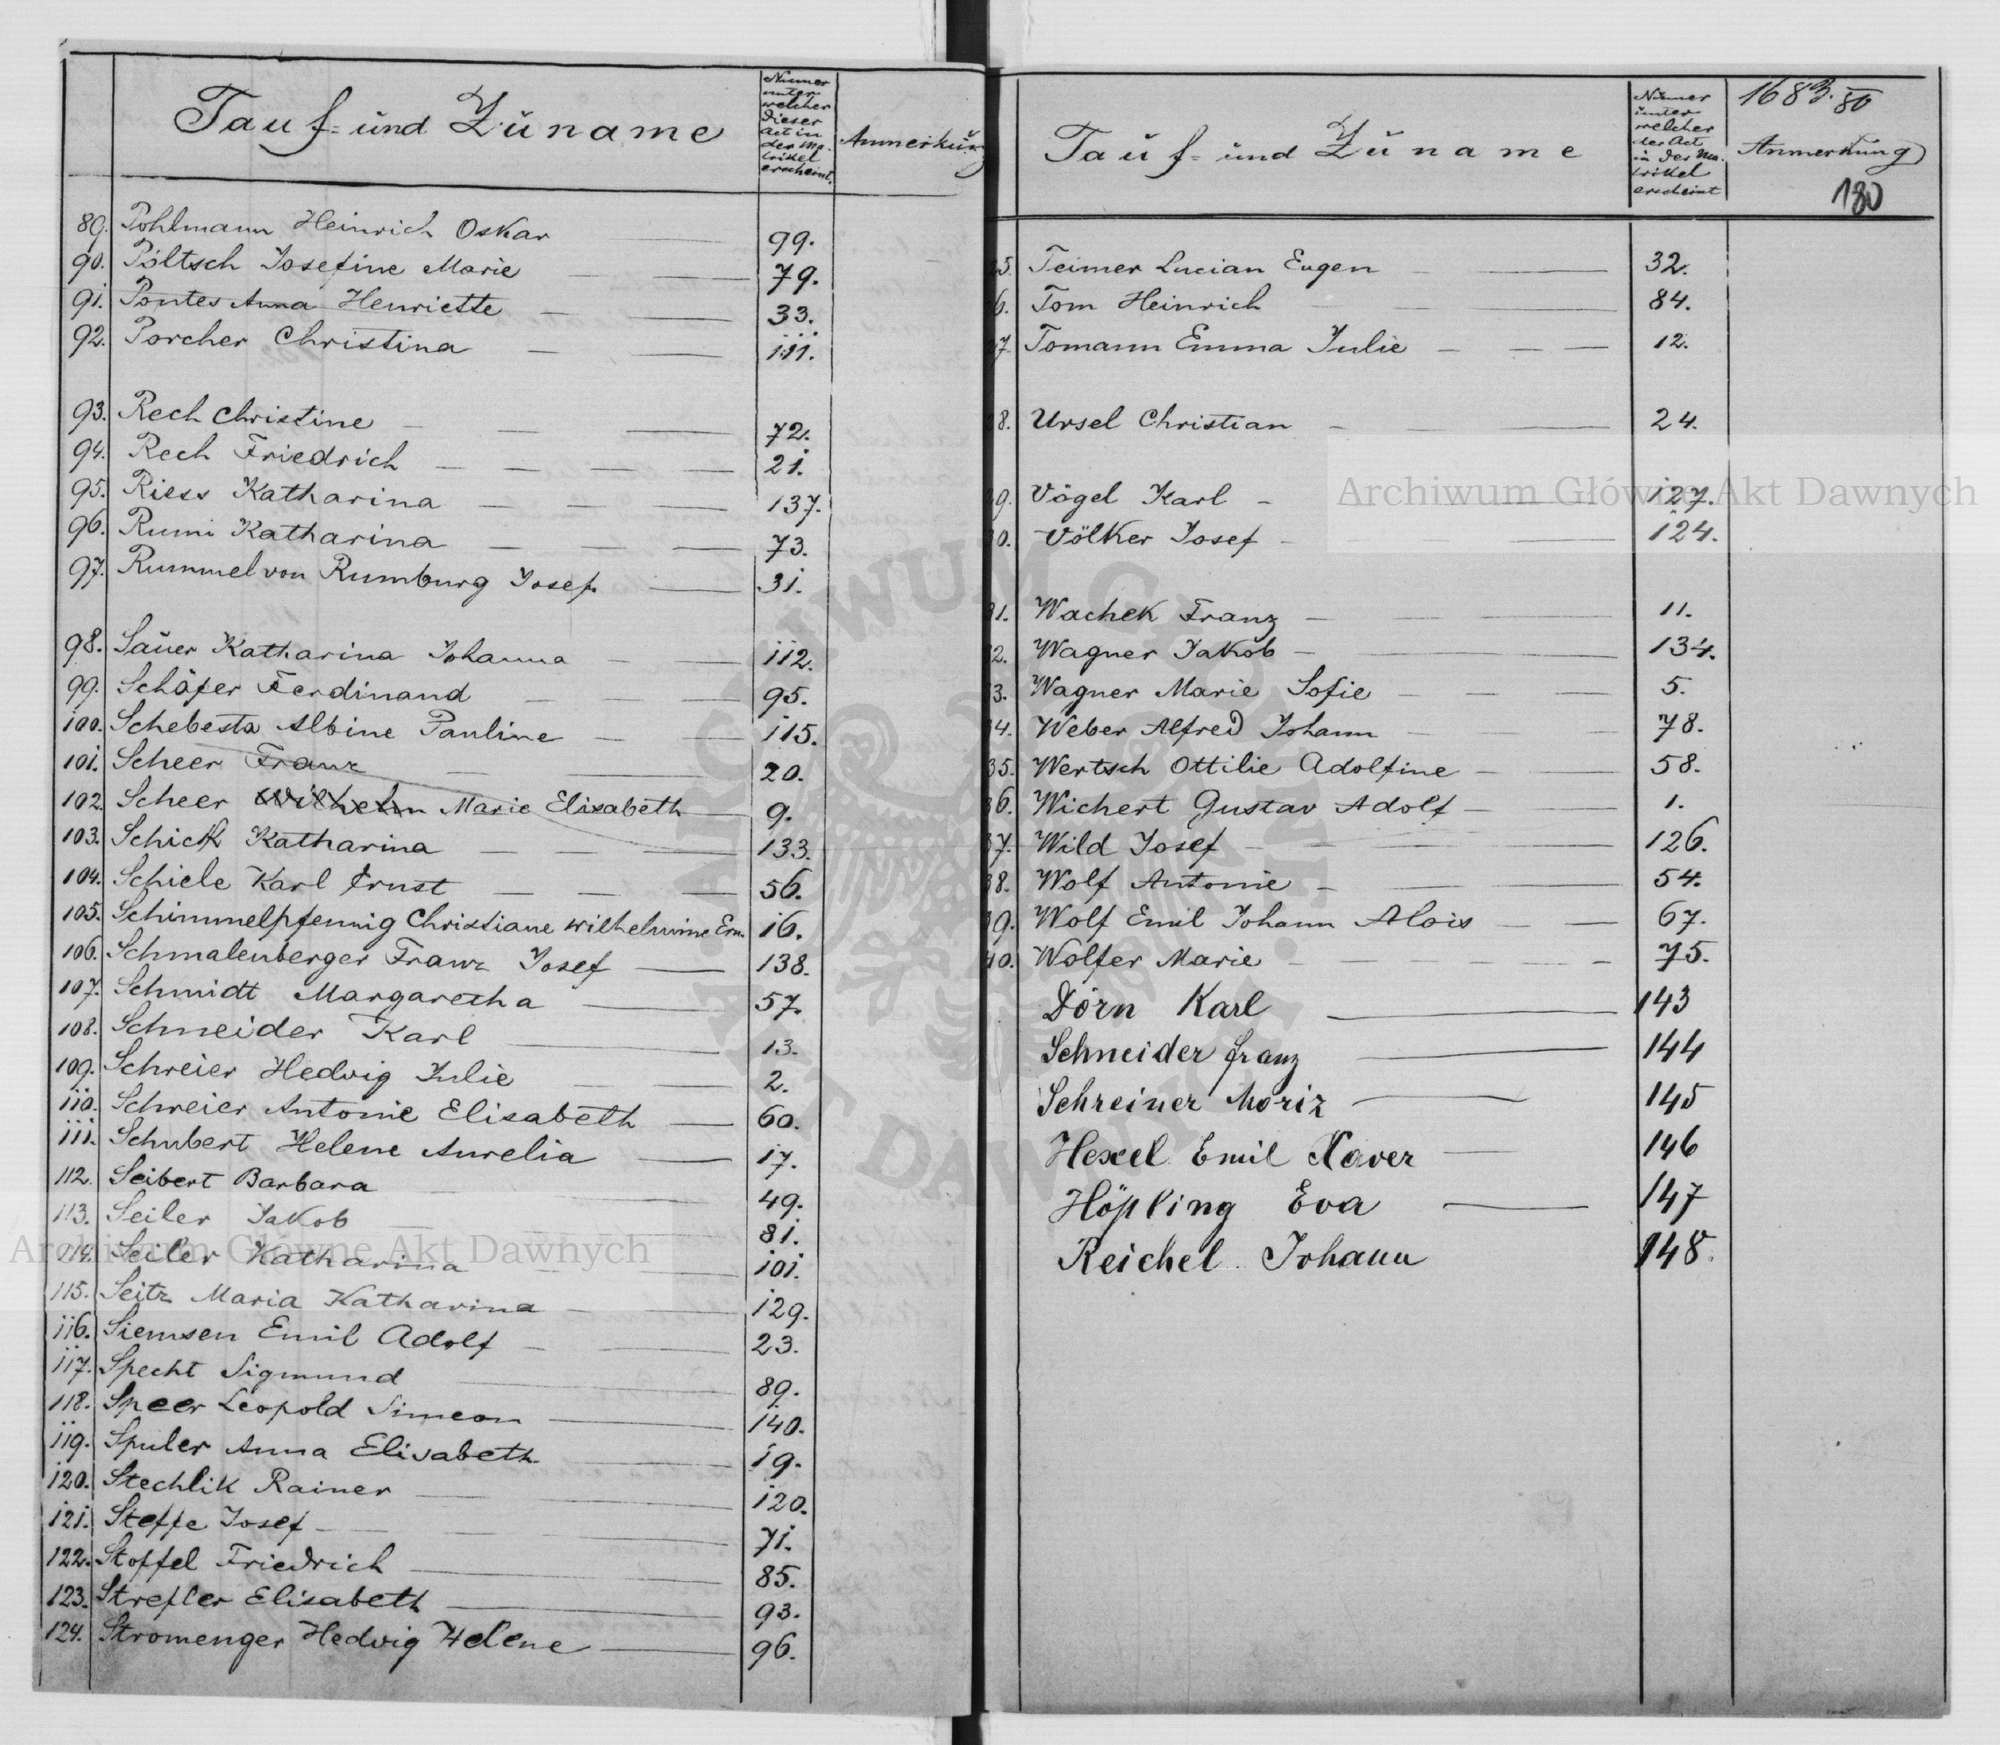 Tauf= und Zuname
Numer unter welcher dieser Act in der Ma-trikel erscheint.
Anmerkung
89. Pohlmann Heinrich Oskar 99.
90. Pöltsch Josefine Marie 79.
91. Pontes Anna Henriette 33.
92. Porcher Christina 111.
93. Rech Christine 72.
94. Rech Friedrich 21.
95. Riess Katharina 137.
96. Rumi Katharina 73.
97. Rummel von Rumburg Josef 31.
98. Sauer Katharina Johanna 112.
99. Schäfer Ferdinand 95.
100. Schebesta Albine Pauline 115.
101. Scheer Franz 20.
102. Scheer Wilhelm Marie Elisabeth 9.
103. Schick Katharina 133.
104. Schiele Karl Ernst 56.
105. Schimmelpfennig Christiane Wilhelmine Ern. 16.
106. Schmalenberger Franz Josef 138.
107. Schmidt Margaretha 57.
108. Schneider Karl 13.
109. Schreier Hedvig Julie 2.
110. Schreier Antonie Elisabeth 60.
111. Schubert Helene Aurelia 17.
112. Seibert Barbara 49.
113. Seiler Jakob 81.
114. Seiler Katharina 101.
115. Seitz Maria Katharina 129.
116. Siemsen Emil Adolf 23.
117. Specht Sigmund 89.
118. Speer Leopold Simeon 140.
119. Spuler Anna Elisabeth 19.
120. Stechlik Rainer 120.
121. Steffe Josef 71.
122. Stoffel Friedrich 85.
123. Strefler Elisabeth 93.
124. Stromenger Hedvig Helene 96.
Archiwum Główne Akt Dawnych
Tauf= und Zuname
Numer unter welcher der Act in der Ma-trikel erscheint
1683./80
Anmerkung
180
5. Teimer Lucian Eugen 32.
6. Tom Heinrich 84.
7. Tomann Emma Julie 12.
8. Ursel Christian 24.
9. Vögel Karl 127.
0. Völker Josef 124.
1. Wachek Franz 11.
2. Wagner Jakob 134.
3. Wagner Marie Sofie 5.
4. Weber Alfred Johann 78.
35. Wertsch Ottilie Adolfine 58.
36. Wichert Gustav Adolf 1.
37. Wild Josef 126.
38. Wolf Antonie 54.
39. Wolf Emil Johann Alois 67.
40. Wolfer Marie 75.
Dörn Karl 143
Schneider Franz 144
Schreiner Moriz 145
Hexel Emil Xaver 146
Höpling Eva 147
Reichel Johann 148.
Archiwum Główne Akt Dawnych
ARCHIWUM GŁÓWNE AKT DAWNYCH